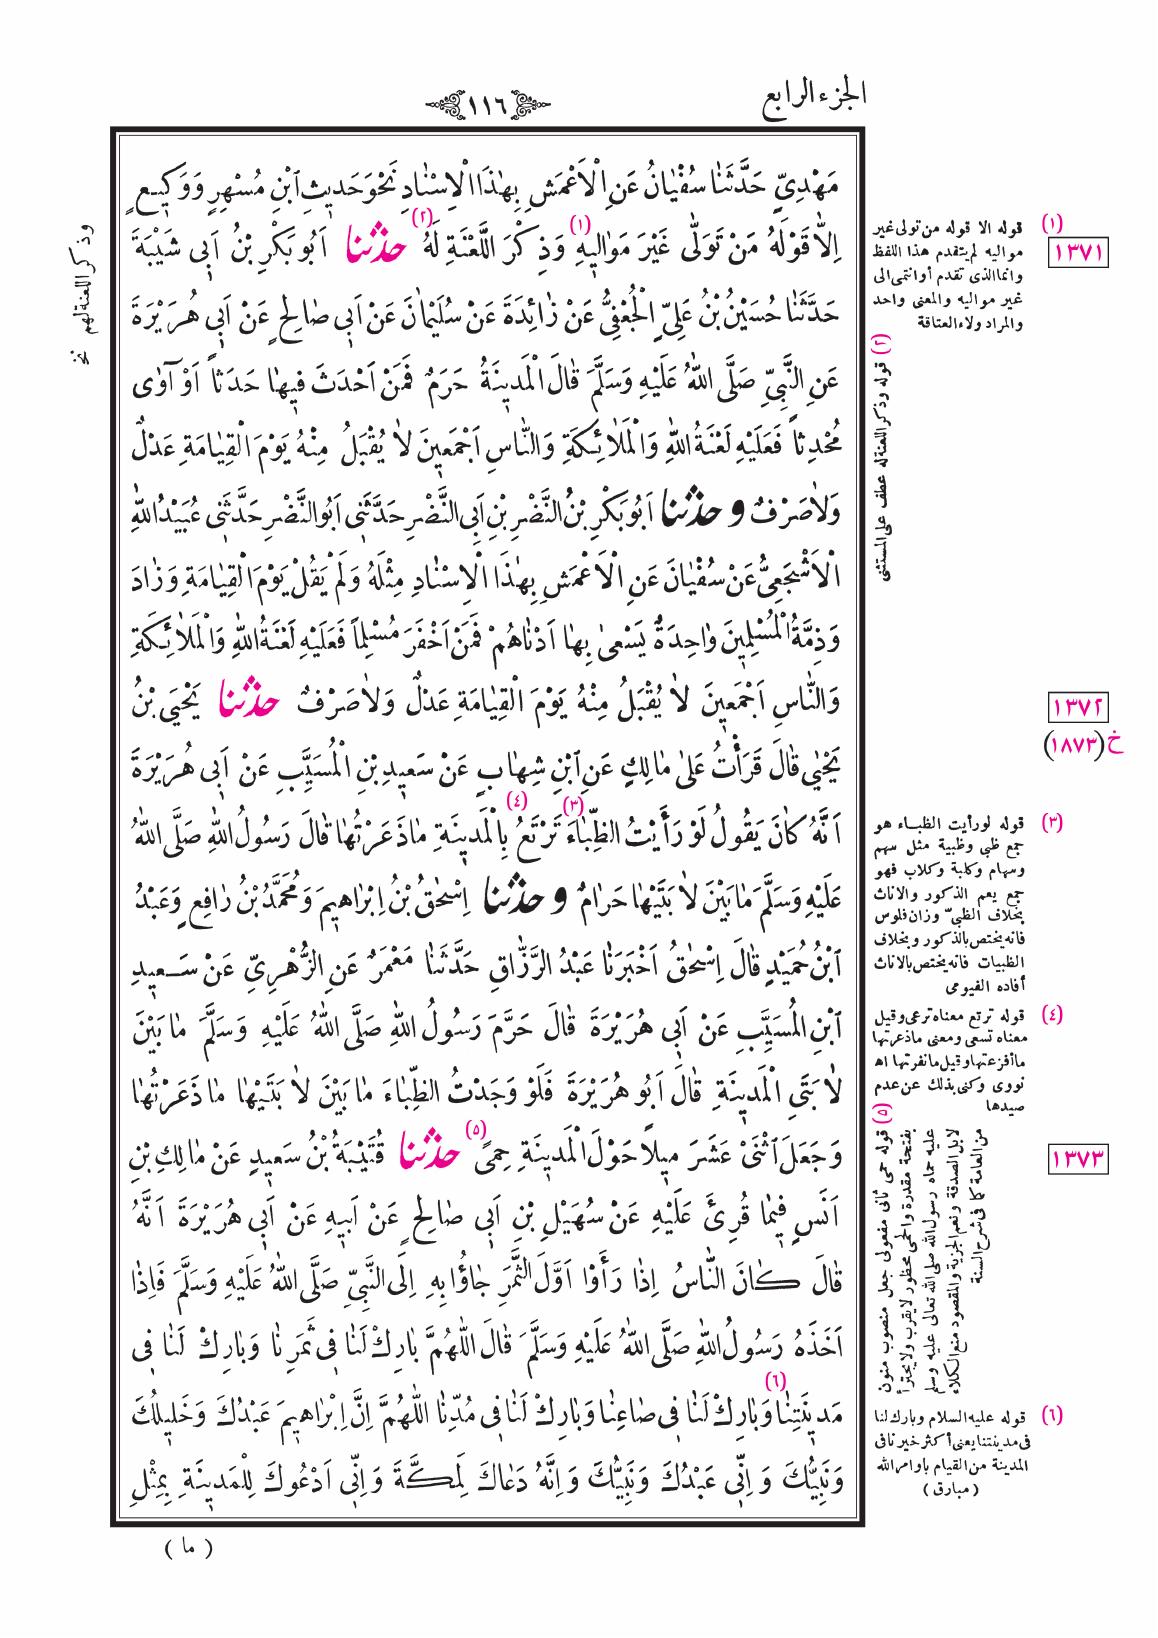 الجزء الرابع
١١٦
مَهْدِيٍّ حَدَّثَنَا سُفْيَانُ عَنِ الْاَعْمَشِ بِهٰذَا الْاِسْنَادِ نَحْوَ حَدِيثِ ابْنِ مُسْهِرٍ وَوَكِيعٍ
اِلَّا قَوْلَهُ مَنْ تَوَلّٰى غَيْرَ مَوَالِيهِ (١) وَذِكْرَ اللَّعْنَةِ لَهُ (٢) حَدَّثَنَا اَبُو بَكْرِ بْنُ اَبِي شَيْبَةَ
حَدَّثَنَا حُسَيْنُ بْنُ عَلِيٍّ الْجُعْفِيُّ عَنْ زَائِدَةَ عَنْ سُلَيْمَانَ عَنْ اَبِي صَالِحٍ عَنْ اَبِي هُرَيْرَةَ
عَنِ النَّبِيِّ صَلَّى اللّٰهُ عَلَيْهِ وَسَلَّمَ قَالَ الْمَدِينَةُ حَرَمٌ فَمَنْ اَحْدَثَ فِيهَا حَدَثاً اَوْ آوٰى
مُحْدِثاً فَعَلَيْهِ لَعْنَةُ اللّٰهِ وَالْمَلَائِكَةِ وَالنَّاسِ اَجْمَعِينَ لَا يُقْبَلُ مِنْهُ يَوْمَ الْقِيَامَةِ عَدْلٌ
وَلَا صَرْفٌ وَحَدَّثَنَا اَبُو بَكْرِ بْنُ النَّضْرِ بْنِ اَبِي النَّضْرِ حَدَّثَنِي اَبُو النَّضْرِ حَدَّثَنِي عُبَيْدُ اللّٰهِ
الْاَشْجَعِيُّ عَنْ سُفْيَانَ عَنِ الْاَعْمَشِ بِهٰذَا الْاِسْنَادِ مِثْلَهُ وَلَمْ يَقُلْ يَوْمَ الْقِيَامَةِ وَزَادَ
وَذِمَّةُ الْمُسْلِمِينَ وَاحِدَةٌ يَسْعٰى بِهَا اَدْنَاهُمْ فَمَنْ اَخْفَرَ مُسْلِماً فَعَلَيْهِ لَعْنَةُ اللّٰهِ وَالْمَلَائِكَةِ
وَالنَّاسِ اَجْمَعِينَ لَا يُقْبَلُ مِنْهُ يَوْمَ الْقِيَامَةِ عَدْلٌ وَلَا صَرْفٌ حَدَّثَنَا يَحْيَى بْنُ
يَحْيٰى قَالَ قَرَأْتُ عَلٰى مَالِكٍ عَنِ ابْنِ شِهَابٍ عَنْ سَعِيدِ بْنِ الْمُسَيَّبِ عَنْ اَبِي هُرَيْرَةَ
اَنَّهُ كَانَ يَقُولُ لَوْ رَأَيْتُ الظِّبَاءَ (٣) تَرْتَعُ (٤) بِالْمَدِينَةِ مَا ذَعَرْتُهَا قَالَ رَسُولُ اللّٰهِ صَلَّى اللّٰهُ
عَلَيْهِ وَسَلَّمَ مَا بَيْنَ لَابَتَيْهَا حَرَامٌ وَحَدَّثَنَا اِسْحٰقُ بْنُ اِبْرَاهِيمَ وَمُحَمَّدُ بْنُ رَافِعٍ وَعَبْدُ
ابْنُ حُمَيْدٍ قَالَ اِسْحٰقُ اَخْبَرَنَا عَبْدُ الرَّزَّاقِ حَدَّثَنَا مَعْمَرٌ عَنِ الزُّهْرِيِّ عَنْ سَعِيدِ
ابْنِ الْمُسَيَّبِ عَنْ اَبِي هُرَيْرَةَ قَالَ حَرَّمَ رَسُولُ اللّٰهِ صَلَّى اللّٰهُ عَلَيْهِ وَسَلَّمَ مَا بَيْنَ
لَابَتَيِ الْمَدِينَةِ قَالَ اَبُو هُرَيْرَةَ فَلَوْ وَجَدْتُ الظِّبَاءَ مَا بَيْنَ لَابَتَيْهَا مَا ذَعَرْتُهَا
وَجَعَلَ اثْنَيْ عَشَرَ مِيلاً حَوْلَ الْمَدِينَةِ حِمًى (٥) حَدَّثَنَا قُتَيْبَةُ بْنُ سَعِيدٍ عَنْ مَالِكِ بْنِ
اَنَسٍ فِيمَا قُرِئَ عَلَيْهِ عَنْ سُهَيْلِ بْنِ اَبِي صَالِحٍ عَنْ اَبِيهِ عَنْ اَبِي هُرَيْرَةَ اَنَّهُ
قَالَ كَانَ النَّاسُ اِذَا رَأَوْا اَوَّلَ الثَّمَرِ جَاؤُا بِهِ اِلَى النَّبِيِّ صَلَّى اللّٰهُ عَلَيْهِ وَسَلَّمَ فَاِذَا
اَخَذَهُ رَسُولُ اللّٰهِ صَلَّى اللّٰهُ عَلَيْهِ وَسَلَّمَ قَالَ اللّٰهُمَّ بَارِكْ لَنَا فِي ثَمَرِنَا وَبَارِكْ لَنَا فِي
مَدِينَتِنَا (٦) وَبَارِكْ لَنَا فِي صَاعِنَا وَبَارِكْ لَنَا فِي مُدِّنَا اللّٰهُمَّ اِنَّ اِبْرَاهِيمَ عَبْدُكَ وَخَلِيلُكَ
وَنَبِيُّكَ وَاِنِّي عَبْدُكَ وَنَبِيُّكَ وَاِنَّهُ دَعَاكَ لِمَكَّةَ وَاِنِّي اَدْعُوكَ لِلْمَدِينَةِ بِمِثْلِ
( ما )
وذكر اللعنة لهم نخ
(١) قوله الا قوله من تولى غير
مواليه لم يتقدم هذا اللفظ
وانما الذى تقدم أو انتمى الى
غير مواليه والمعنى واحد
والمراد ولاء العتاقة
١٣٧١
(٢) قوله وذكر اللعنة له عطف على المستثنى
١٣٧٢
خ (١٨٧٣)
(٣) قوله لو رأيت الظبـاء هو
جمع ظبى وظبية مثل سهم
وسهام وكلبة وكلاب فهو
جمع يعم الذكور والاناث
بخلاف الظبىّ وزان فلوس
فانه يختص بالذكور وبخلاف
الظبيات فانه يختص بالاناث
أفاده الفيومى
(٤) قوله ترتع معناه ترعى وقيل
معناه تسعى ومعنى ما ذعرتها
ما أفزعتها وقيل ما نفرتها اه
نووى وكنى بذلك عن عدم
صيدها
(٥) قوله حمى ثانى مفعولى جعل منصوب منون
بفتحة مقدرة والحمى محظور لا يقرب ولا يجترأ
عليه حماه رسول الله صلى الله تعالى عليه وسلم
لابل الصدقة ونعم الجزية والمقصود منع الكلاء
من العامة كما فى شرح السنة
١٣٧٣
(٦) قوله عليه السلام وبارك لنا
فى مدينتنا يعنى أكثر خيرنا فى
المدينة من القيام باوامر الله
( مبارق )